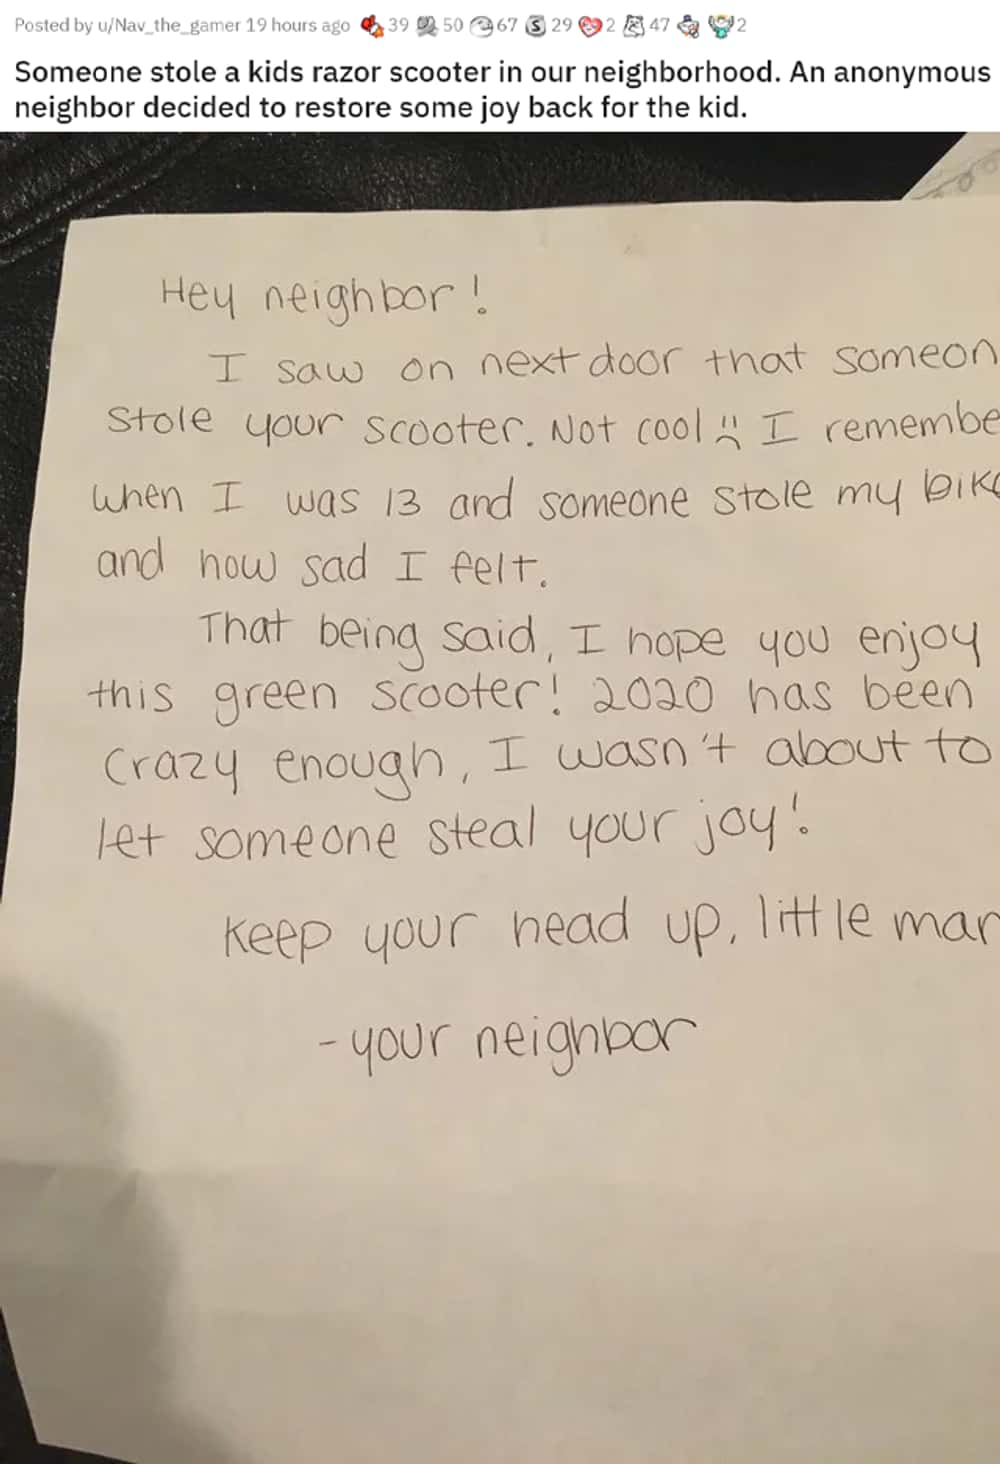 Posted by u/Nav_the_gamer 19 hours ago 39 50 67 S 29 2 47 2
Someone stole a kids razor scooter in our neighborhood. An anonymous
neighbor decided to restore some joy back for the kid.
Hey neighbor!
I saw on nextdoor that someon
stole your scooter. Not cool :( I remembe
when I was 13 and someone stole my bike
and how sad I felt.
That being said, I hope you enjoy
this green scooter! 2020 has been
crazy enough, I wasn't about to
let someone steal your joy!
Keep your head up, little man
- your neighbor